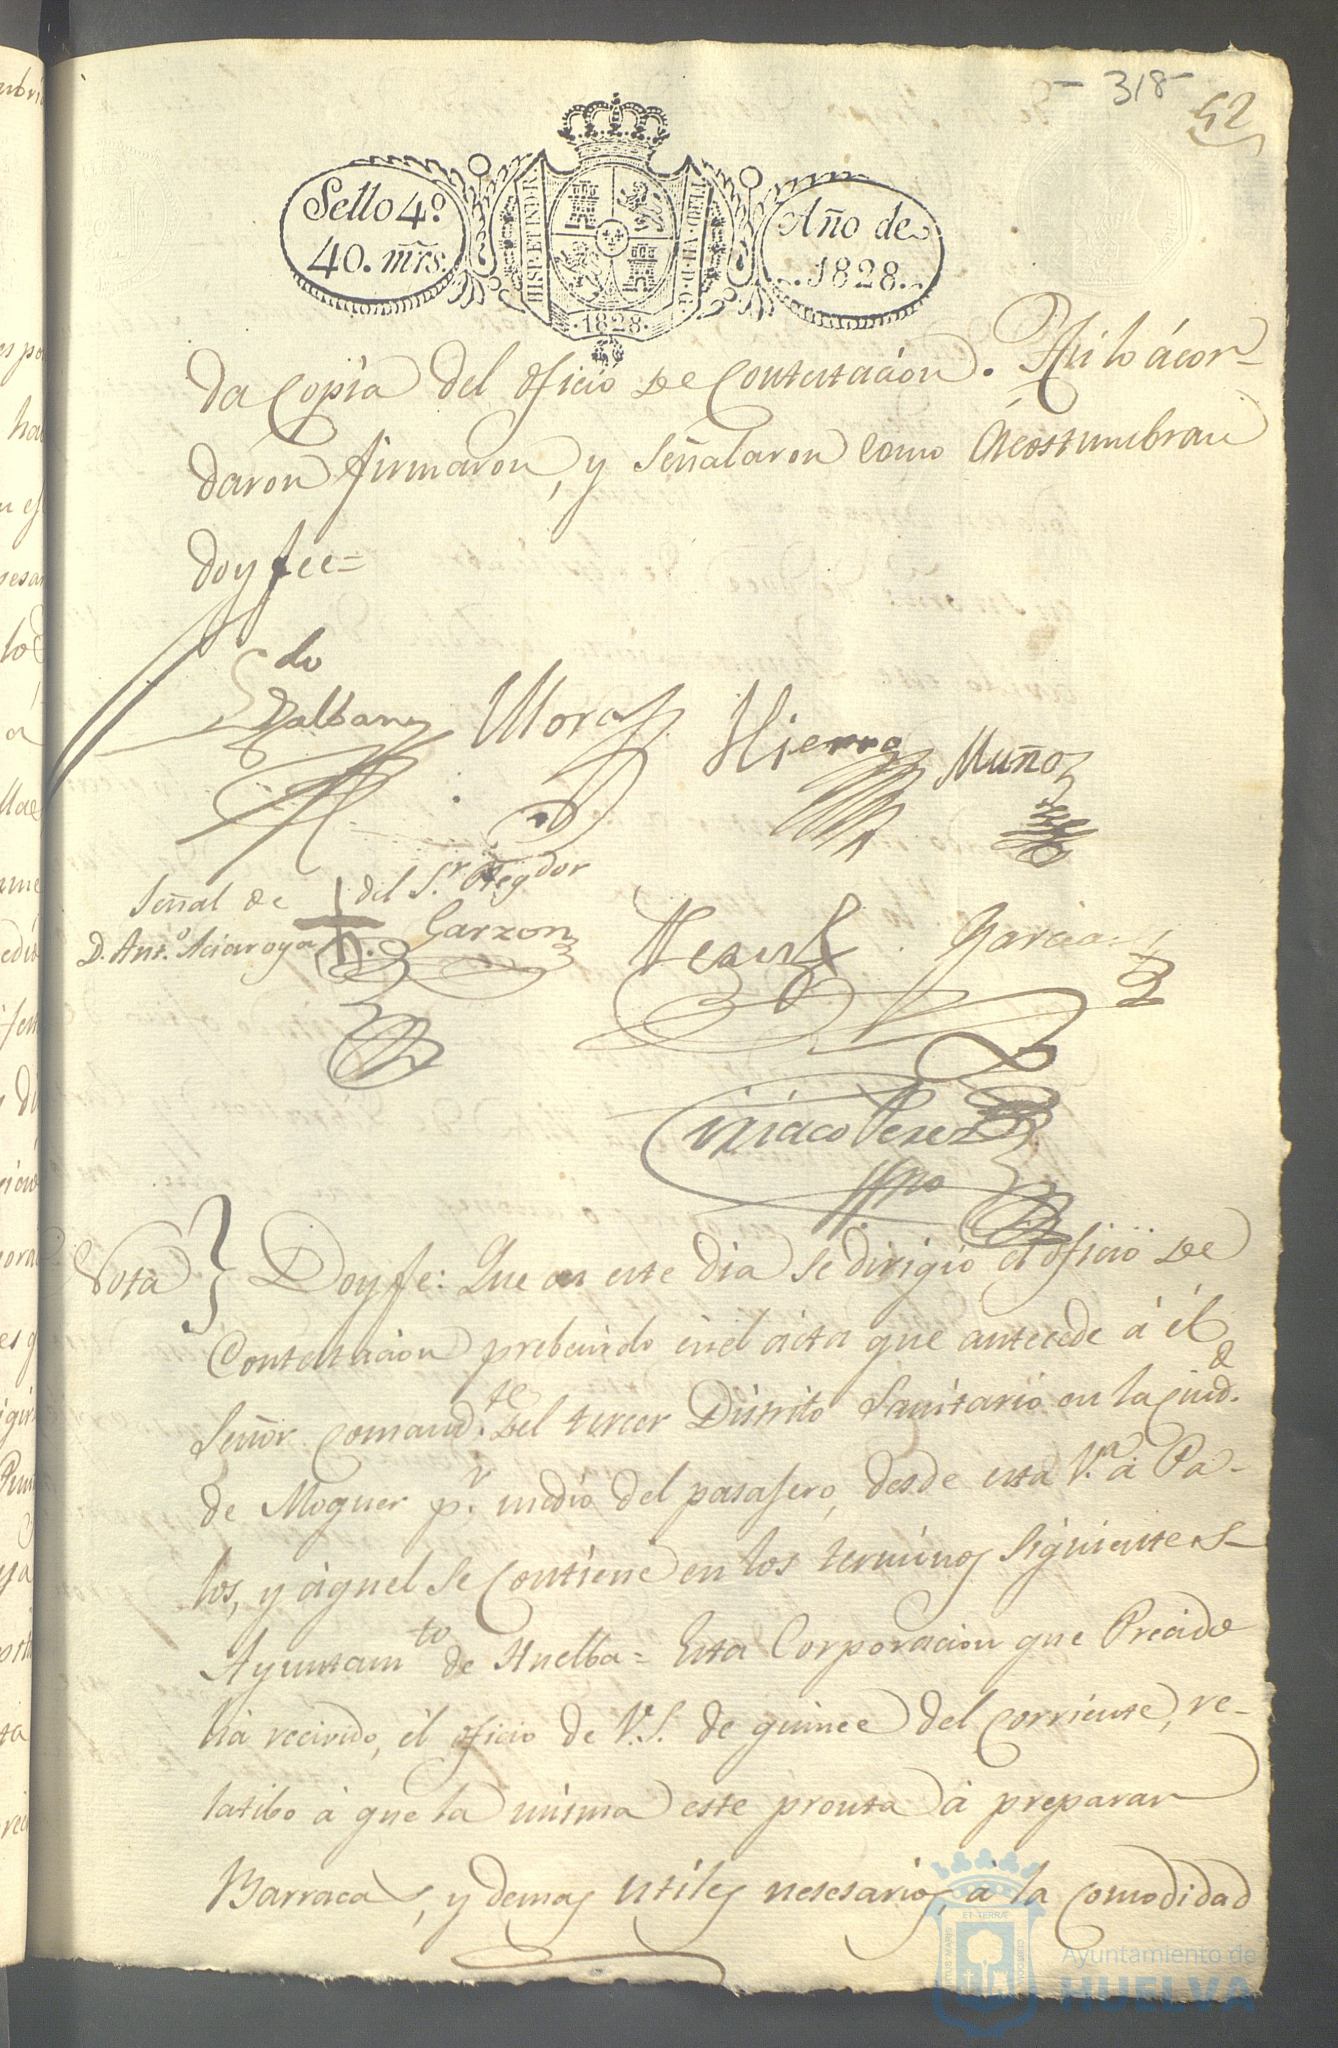 - 318 -
52
Sello 4º
40. mrs.
HISP. ET IND. R.
FERD. VII. D. G.
· 1828 ·
Año de
1828.
da copia del oficio de Contestacion. Asi lo ácor-
daron firmaron, y señalaron como Acostumbran
doy fee=
Ldo
Dalbany Mora Hierro Muñoz
Señal de del S.r Regdor
D. Ant.º Garzon Garcia
Ciriáco Perez
Nota } Doyfe: Que en este dia se dirigió el oficio de
Contestacion prebenido enel acta que antecede á él
Señor Comand.te del tercer Distrito Sanitario en la Ciud.d
de Moguer p.r medio del pasajero, desde esta V.a á Pa-
los, y áquel se contiene en los terminos siguientes
Ayuntamto de Huelba= Esta Corporacion que Precido
há recivido, él oficio de V.S. de quince del corriente, re-
latibo á que la misma esté pronta á preparar
Barraca, y demas útiles nesesarios, á la comodidad
Ayuntamiento de
HUELVA